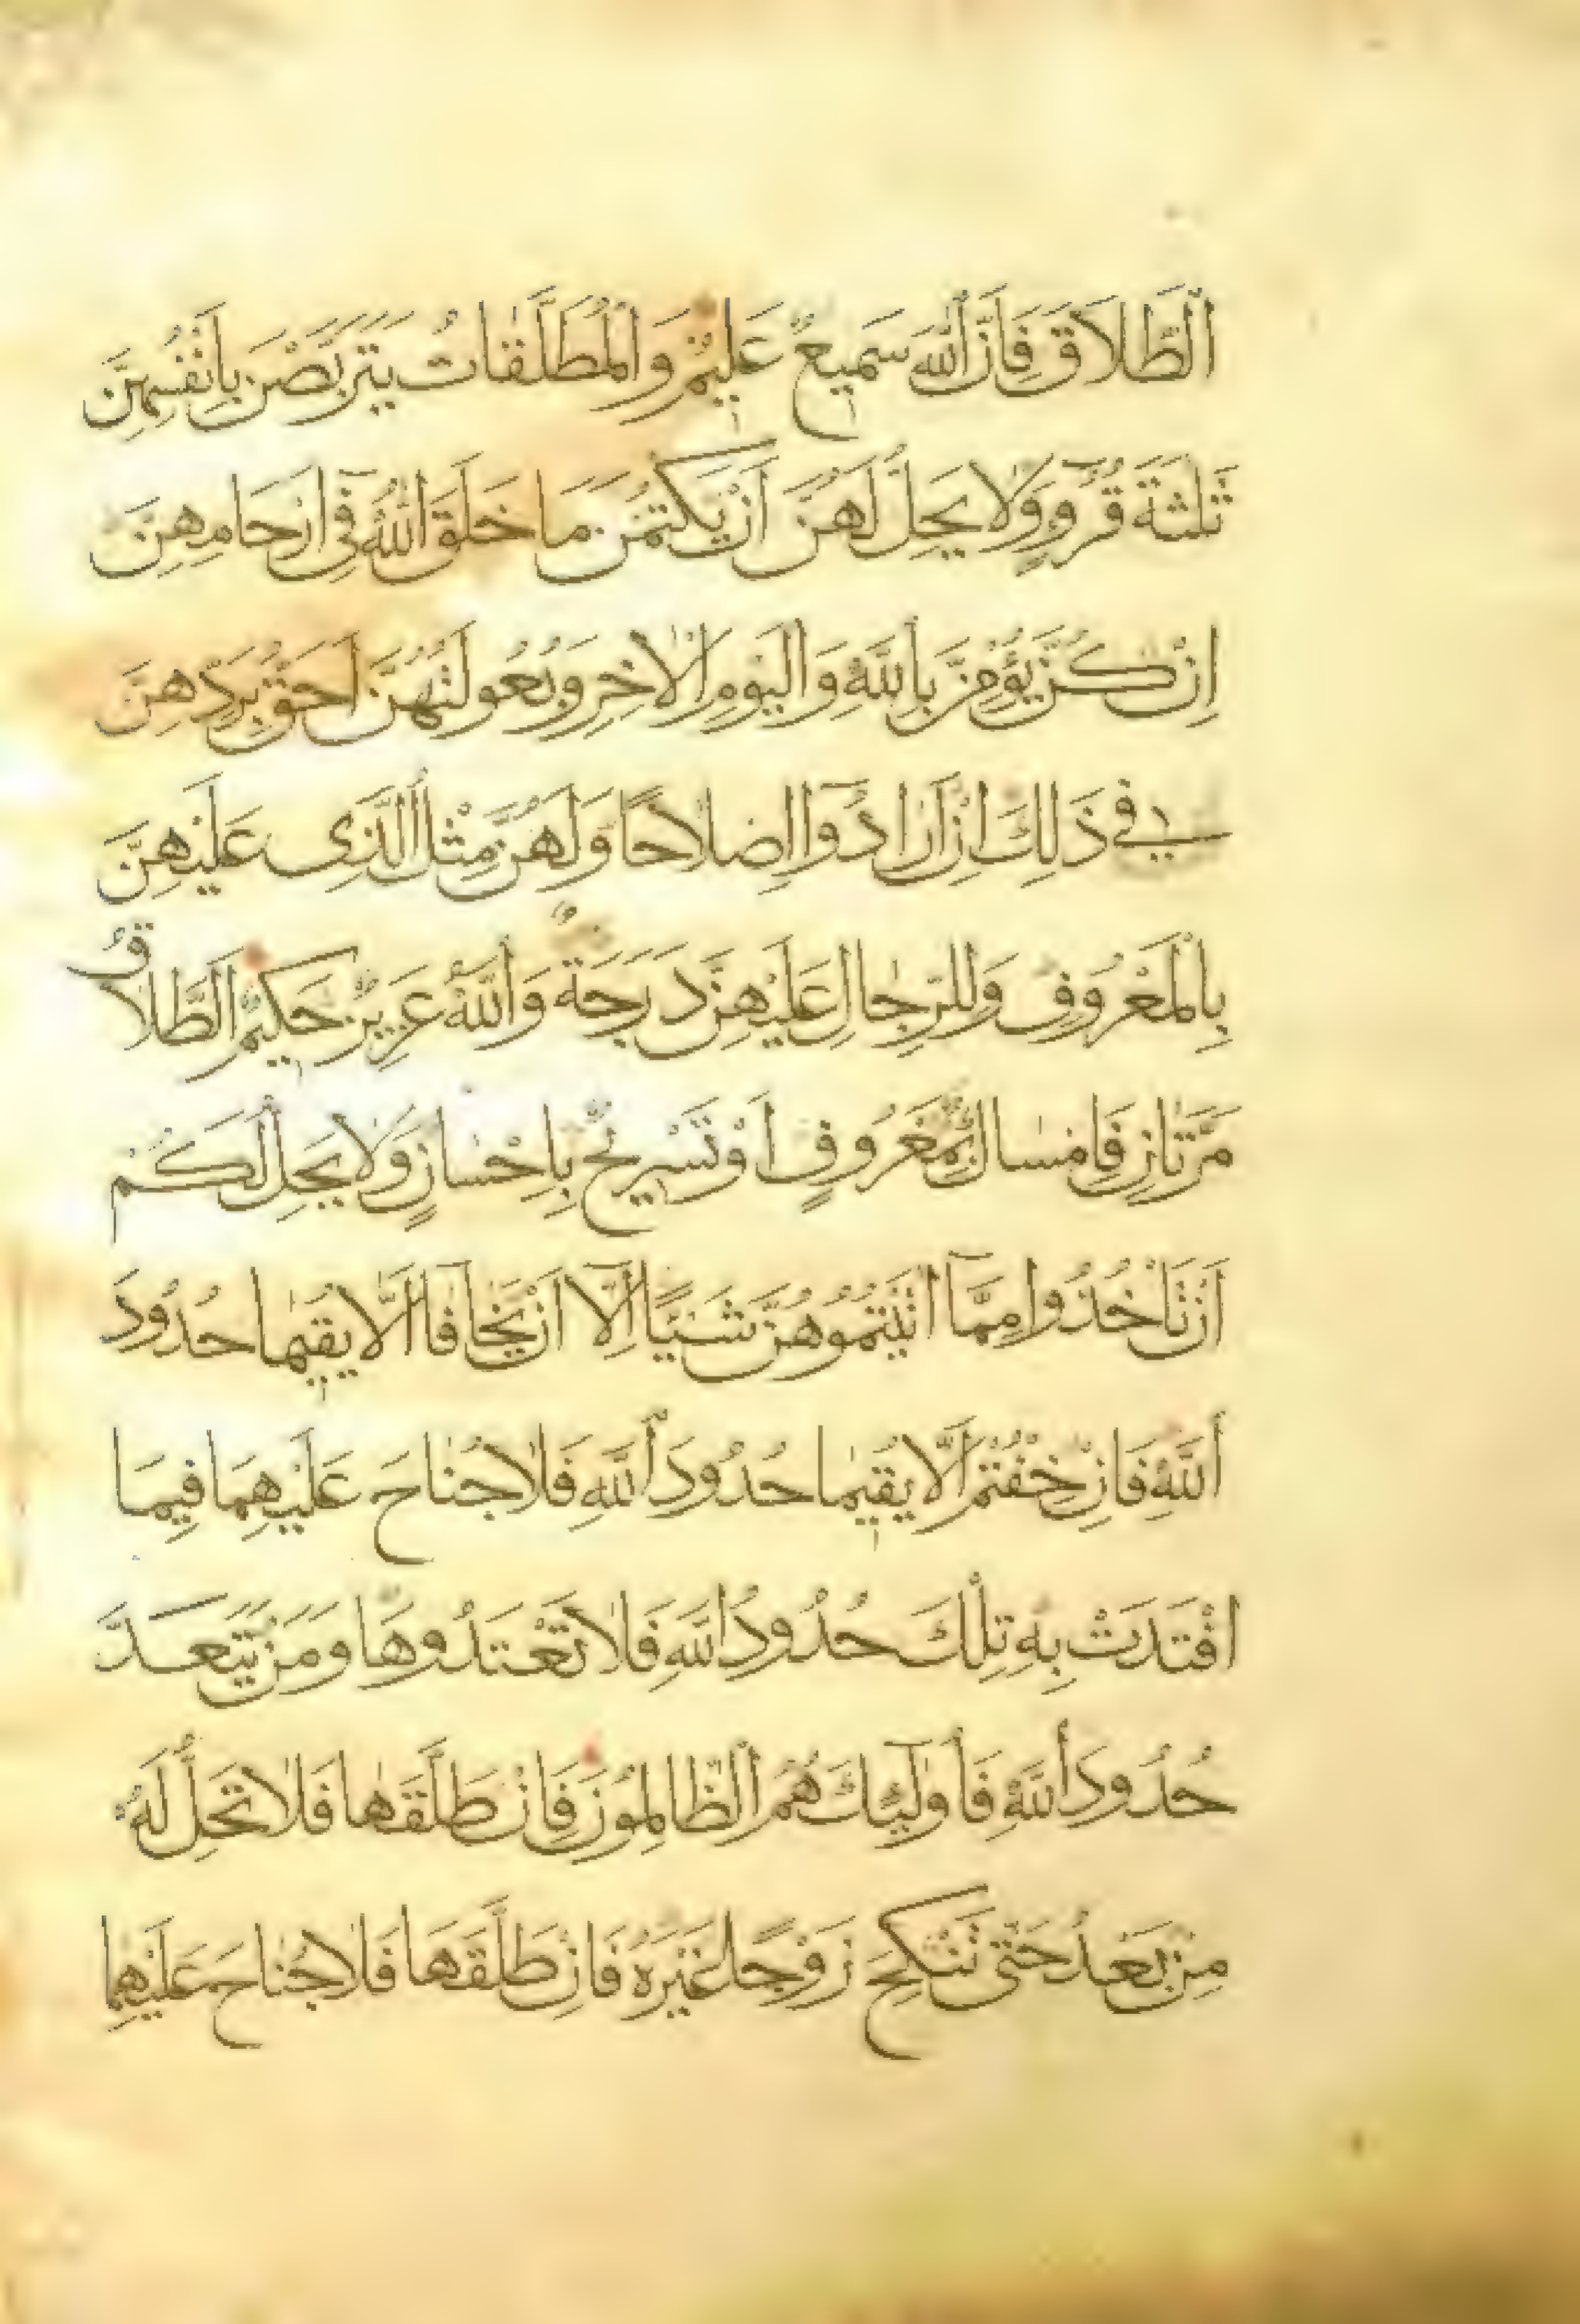 اَلطَّلَاقَ فَاِنَّ اللّٰهَ سَمِيعٌ عَلِيمٌ وَالْمُطَلَّقَاتُ يَتَرَبَّصْنَ بِاَنْفُسِهِنَّ
ثَلٰثَةَ قُرُوٓءٍ وَلَا يَحِلُّ لَهُنَّ اَنْ يَكْتُمْنَ مَا خَلَقَ اللّٰهُ فِٓى اَرْحَامِهِنَّ
اِنْ كُنَّ يُؤْمِنَّ بِاللّٰهِ وَالْيَوْمِ الْاٰخِرِ وَبُعُولَتُهُنَّ اَحَقُّ بِرَدِّهِنَّ
فِي ذٰلِكَ اِنْ اَرَادُٓوا اِصْلَاحًا وَلَهُنَّ مِثْلُ الَّذِى عَلَيْهِنَّ
بِالْمَعْرُوفِ وَلِلرِّجَالِ عَلَيْهِنَّ دَرَجَةٌ وَاللّٰهُ عَزِيزٌ حَكِيمٌ اَلطَّلَاقُ
مَرَّتَانِ فَاِمْسَاكٌ بِمَعْرُوفٍ اَوْ تَسْرِيحٌ بِاِحْسَانٍ وَلَا يَحِلُّ لَكُمْ
اَنْ تَاْخُذُوا مِمَّٓا اٰتَيْتُمُوهُنَّ شَيْئًا اِلَّٓا اَنْ يَخَافَٓا اَلَّا يُقِيمَا حُدُودَ
اللّٰهِ فَاِنْ خِفْتُمْ اَلَّا يُقِيمَا حُدُودَ اللّٰهِ فَلَا جُنَاحَ عَلَيْهِمَا فِيمَا
افْتَدَتْ بِهِ تِلْكَ حُدُودُ اللّٰهِ فَلَا تَعْتَدُوهَا وَمَنْ يَتَعَدَّ
حُدُودَ اللّٰهِ فَاُولٰٓئِكَ هُمُ الظَّالِمُونَ فَاِنْ طَلَّقَهَا فَلَا تَحِلُّ لَهُ
مِنْ بَعْدُ حَتّٰى تَنْكِحَ زَوْجًا غَيْرَهُ فَاِنْ طَلَّقَهَا فَلَا جُنَاحَ عَلَيْهِمَا